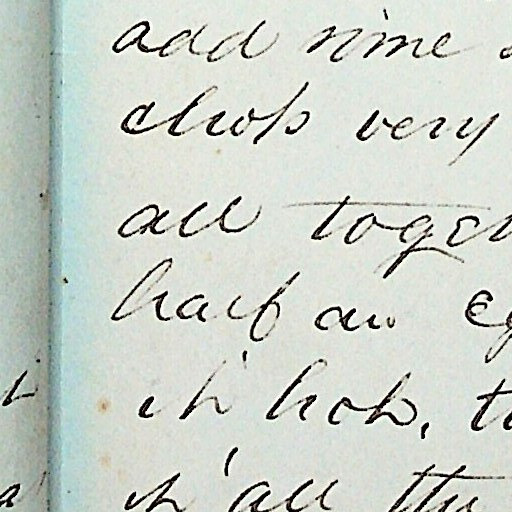 add nime
chop very
all toge
half an eg
it hot, t
it all the